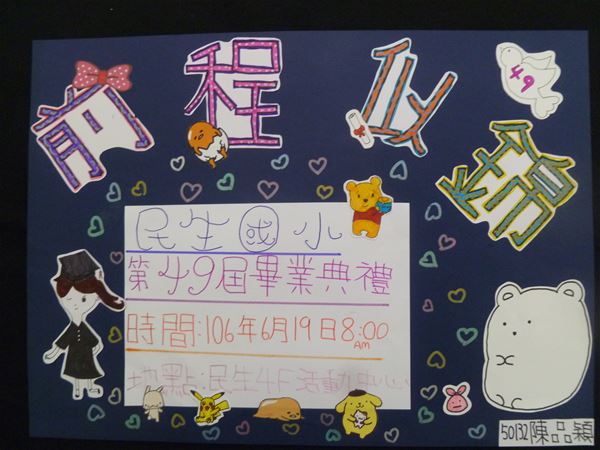 前程似錦
49
民生國小
第49屆畢業典禮
時間:106年6月19日8:00
AM
地點:民生4F活動中心
50132陳品穎